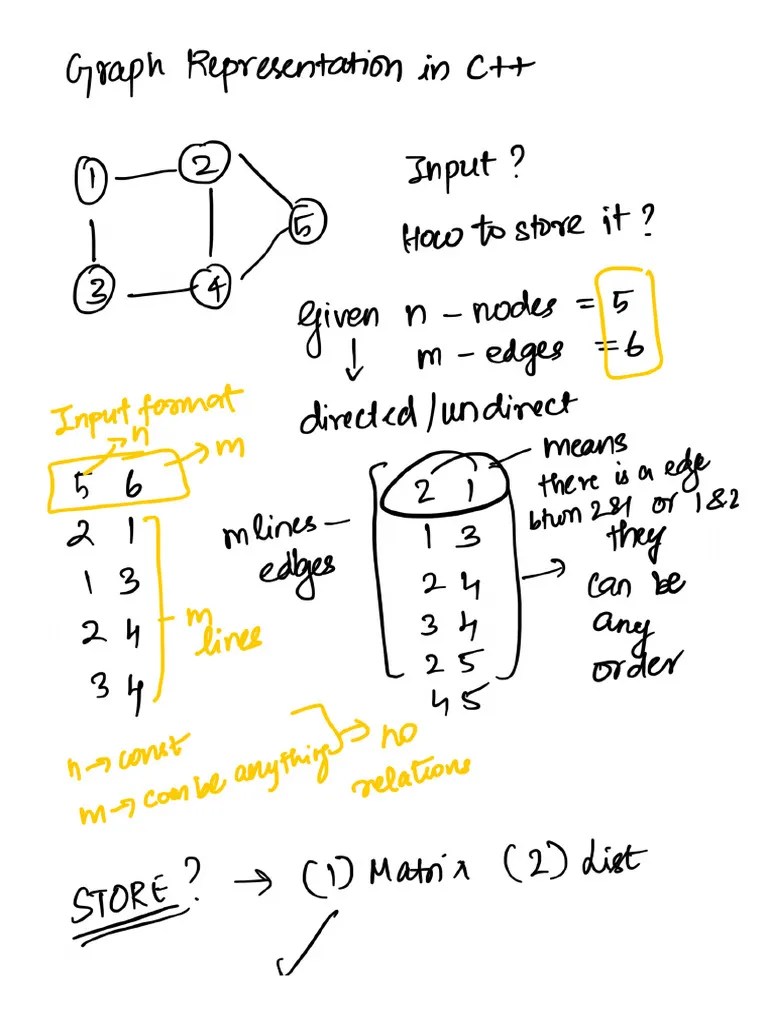 Graph Representation in C++
1
2
3
4
5
Input?
How to store it?
Given n - nodes = 5
m - edges = 6
directed/undirect
Input format
n
m
5 6
2 1
1 3
2 4
3 4
m
lines
m lines -
edges
2 1
1 3
2 4
3 4
2 5
4 5
means
there is a edge
btwn 2&1 or 1&2
they
can be
any
order
n → const
m → can be anything
no
relations
STORE? → (1) Matrix (2) List